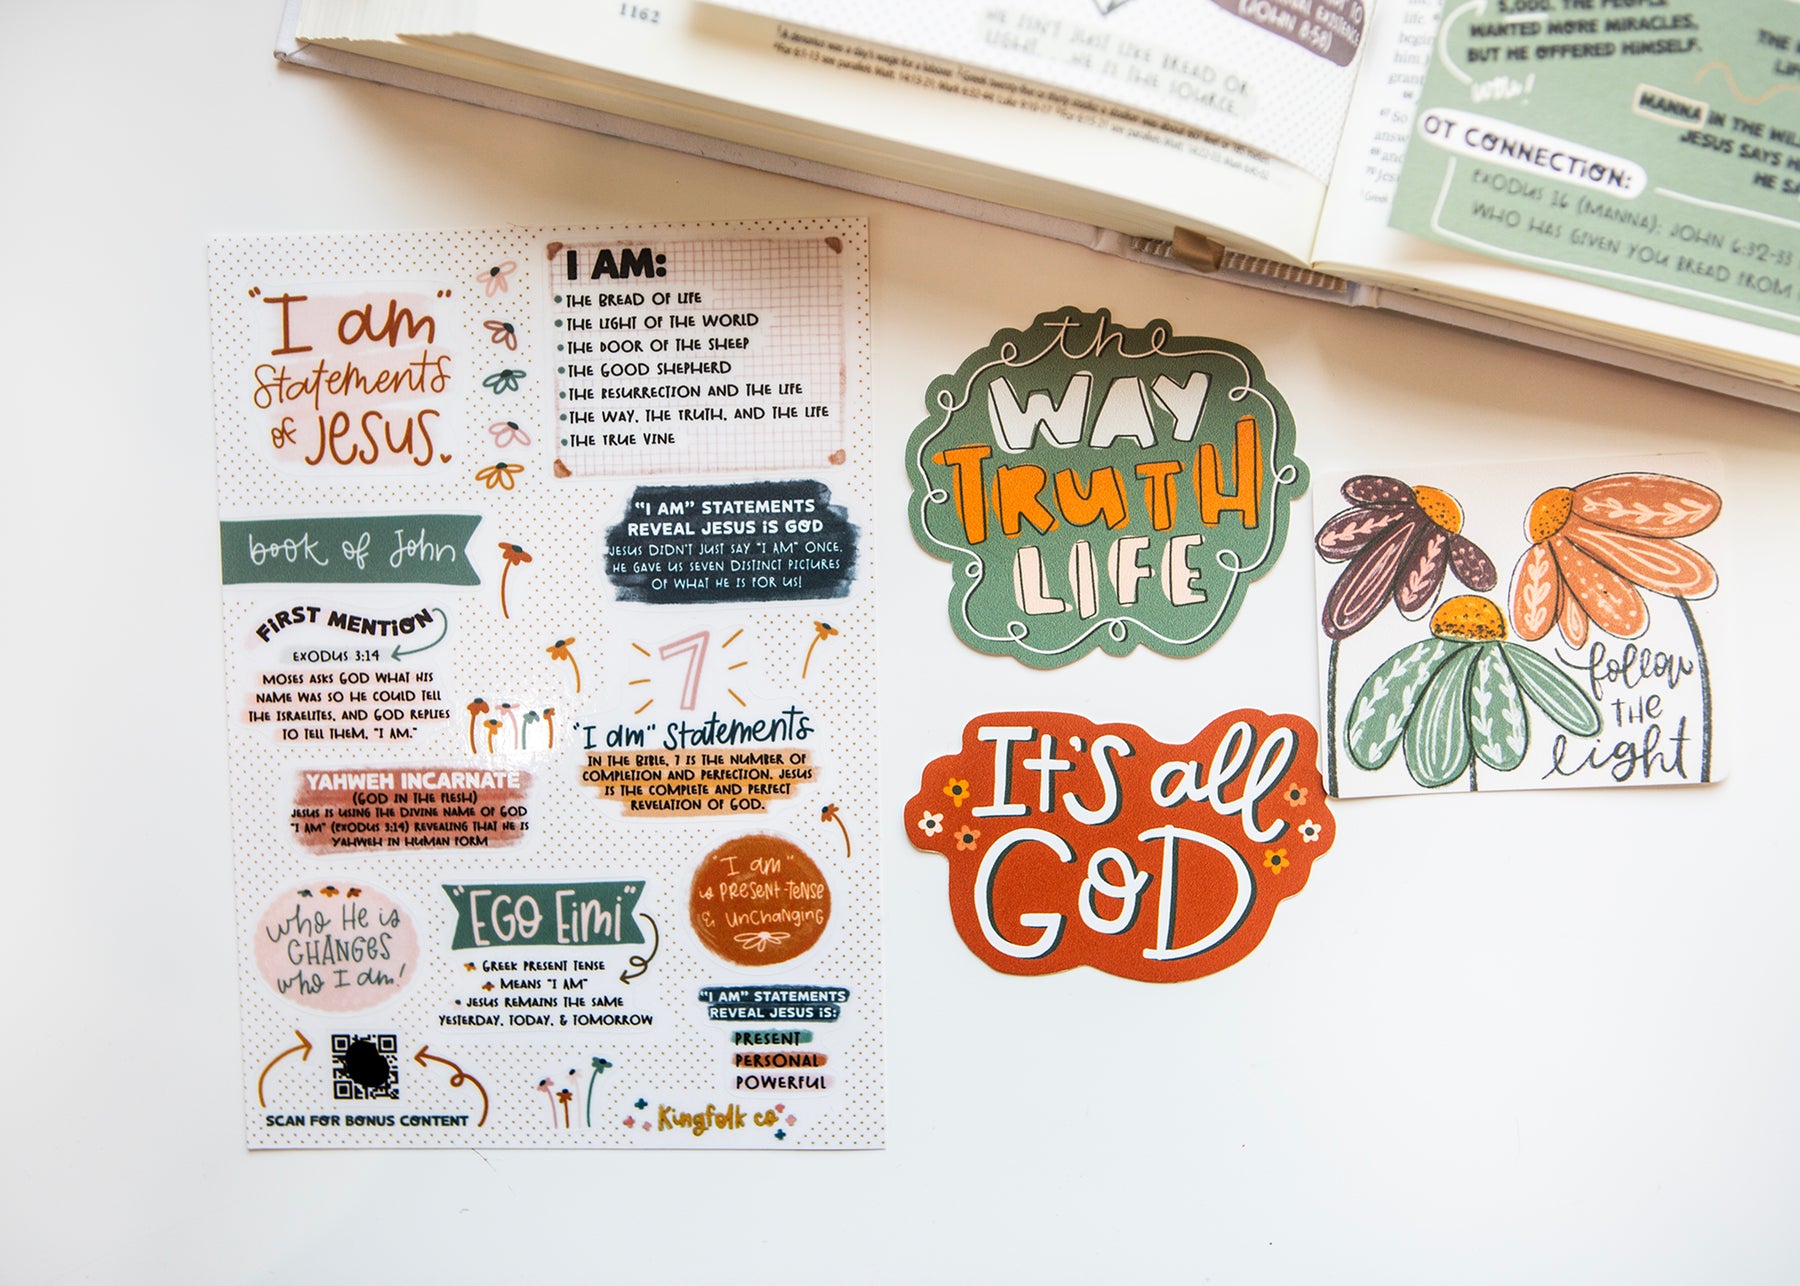 1162
(JOHN 8:58)
HE ISN'T JUST LIKE BREAD OR
LIGHT... HE IS THE SOURCE.
5,000. THE PEOPLE
WANTED MORE MIRACLES,
BUT HE OFFERED HIMSELF.
OT CONNECTION:
EXODUS 16 (MANNA); JOHN 6:32-33
WHO HAS GIVEN YOU BREAD FROM
MANNA IN THE
JESUS SAYS
"I am"
Statements
of Jesus.
I AM:
• THE BREAD OF LIFE
• THE LIGHT OF THE WORLD
• THE DOOR OF THE SHEEP
• THE GOOD SHEPHERD
• THE RESURRECTION AND THE LIFE
• THE WAY, THE TRUTH, AND THE LIFE
• THE TRUE VINE
book of John
"I AM" STATEMENTS
REVEAL JESUS IS GOD
JESUS DIDN'T JUST SAY "I AM" ONCE,
HE GAVE US SEVEN DISTINCT PICTURES
OF WHAT HE IS FOR US!
FIRST MENTION
EXODUS 3:14
MOSES ASKS GOD WHAT HIS
NAME WAS SO HE COULD TELL
THE ISRAELITES, AND GOD REPLIES
TO TELL THEM, "I AM."
7
"I am" Statements
IN THE BIBLE, 7 IS THE NUMBER OF
COMPLETION AND PERFECTION. JESUS
IS THE COMPLETE AND PERFECT
REVELATION OF GOD.
YAHWEH INCARNATE
(GOD IN THE FLESH)
JESUS IS USING THE DIVINE NAME OF GOD
"I AM" (EXODUS 3:14) REVEALING THAT HE IS
YAHWEH IN HUMAN FORM
who He is
CHANGES
who I am!
"EGO Eimi"
GREEK PRESENT TENSE
MEANS "I AM"
• JESUS REMAINS THE SAME
YESTERDAY, TODAY, & TOMORROW
"I am"
is PRESENT-TENSE
& UNCHANGING
"I AM" STATEMENTS
REVEAL JESUS IS:
PRESENT
PERSONAL
POWERFUL
SCAN FOR BONUS CONTENT
Kingfolk co
the
WAY
TRUTH
LIFE
It's all
GOD
follow
THE
light